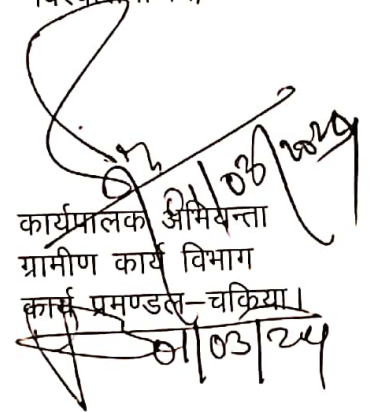 01/03/2024
कार्यपालक अभियन्ता
ग्रामीण कार्य विभाग
कार्य प्रमण्डल–चकिया।
01/03/24